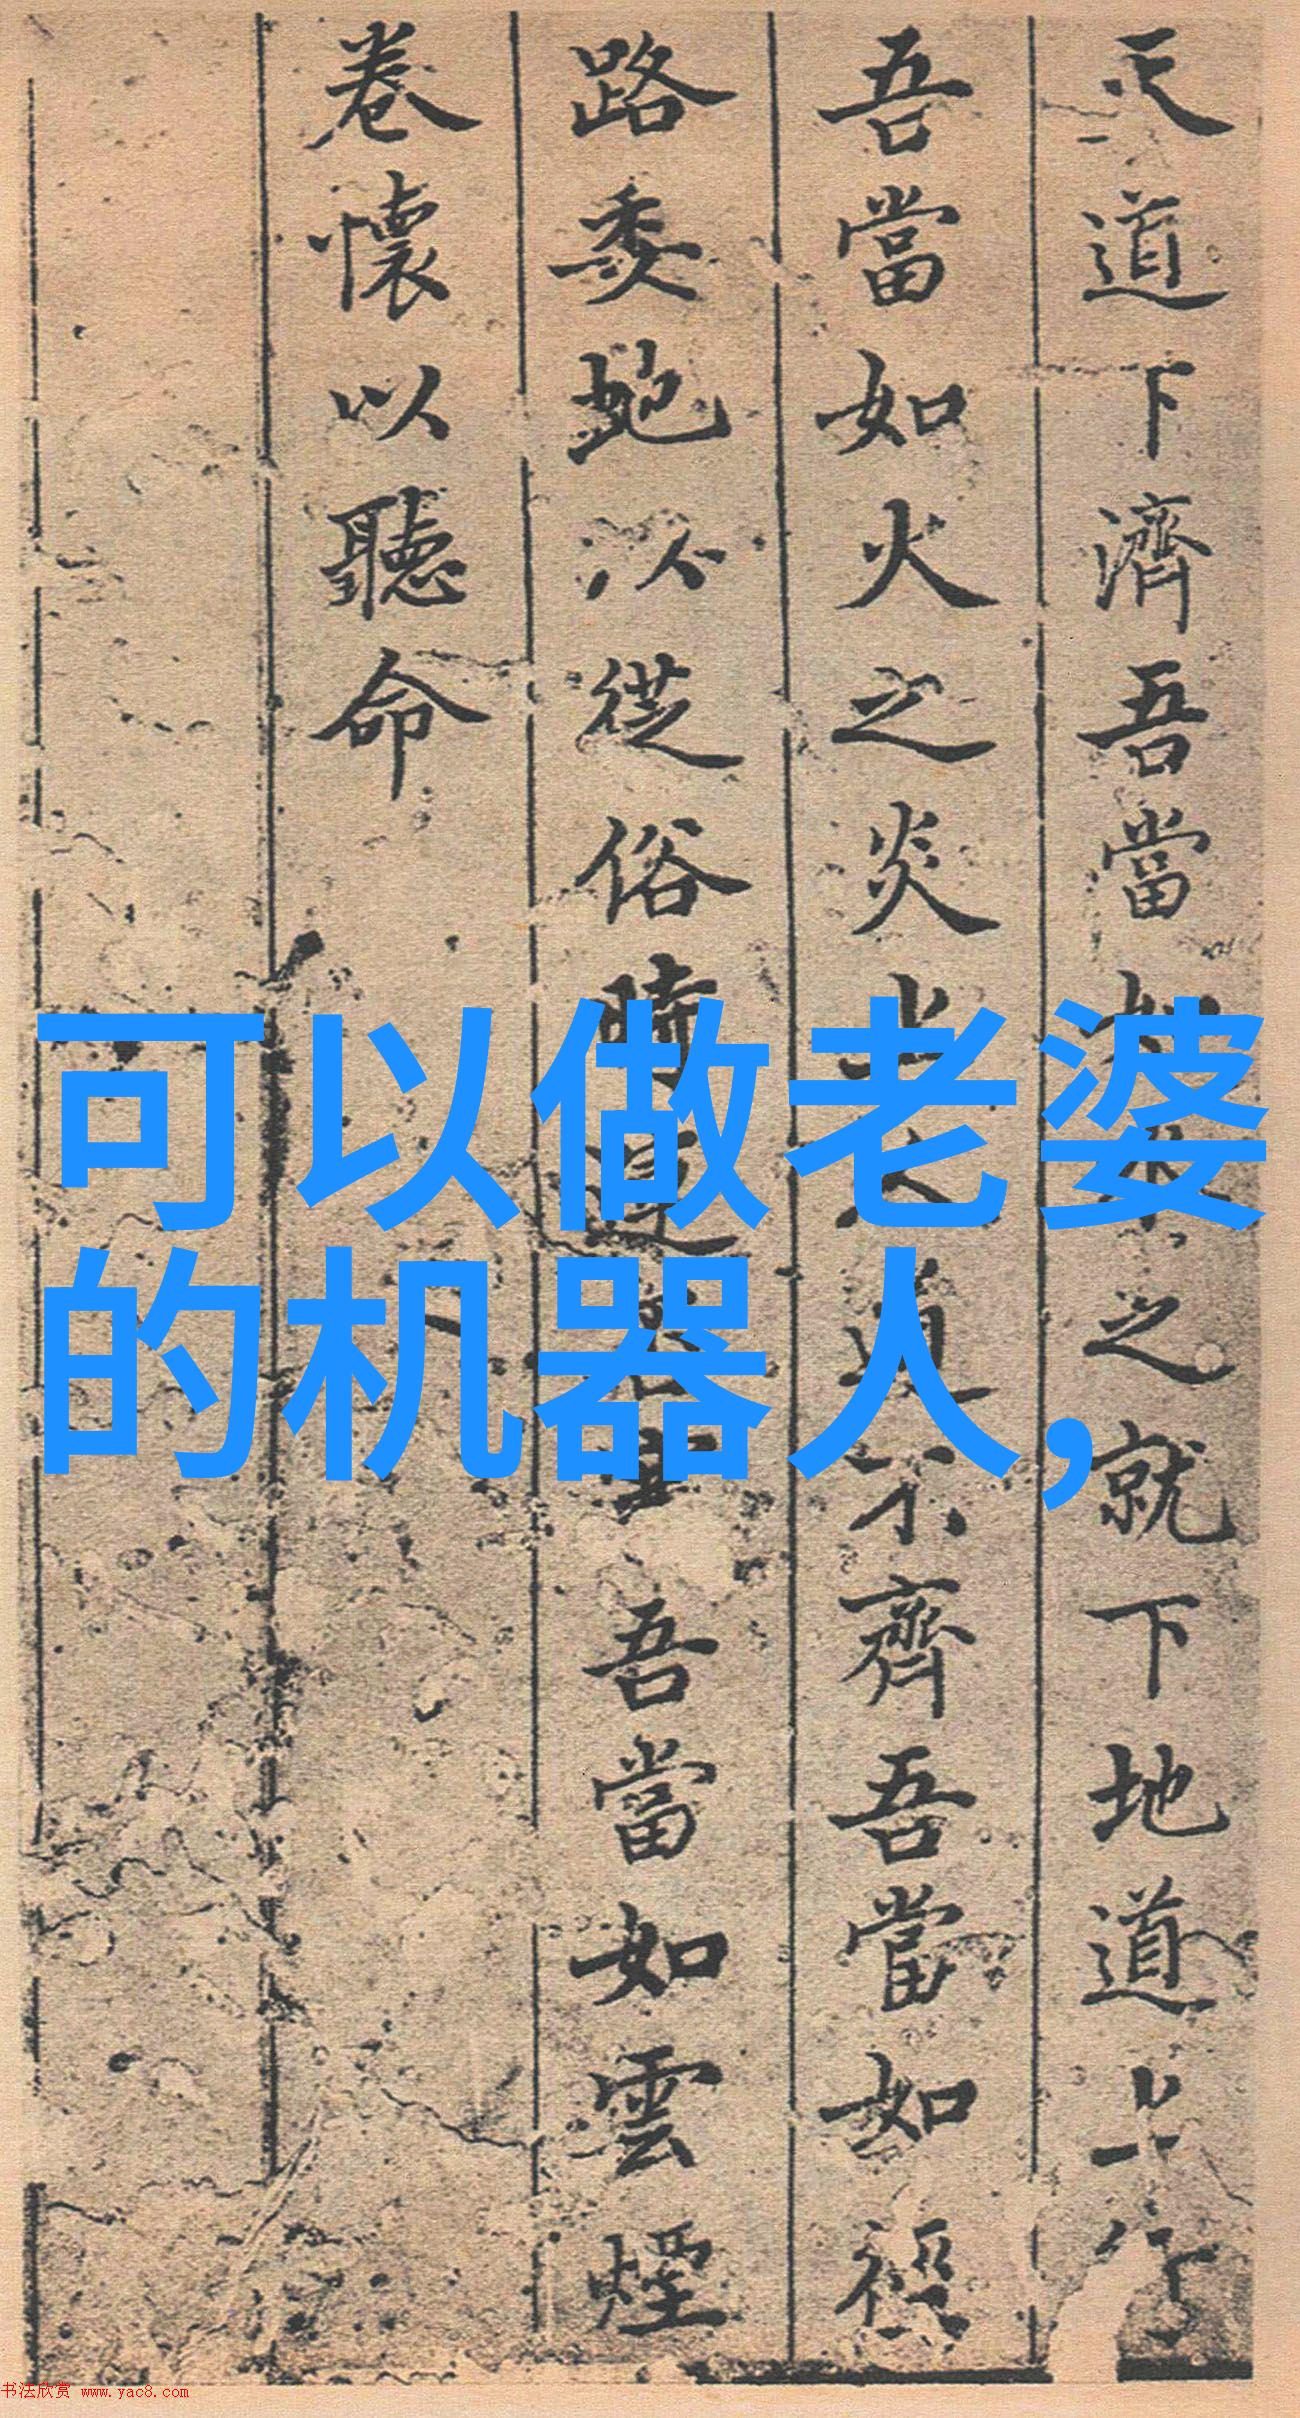 天道下濟吾當如水之就下地道上行
吾當如火之炎上人道不齊吾當如徑
路委蛇以從俗時達吾當如雲煙
卷懷以聽命
可以做老婆
的机器人,
书法欣赏 www.yac8.com